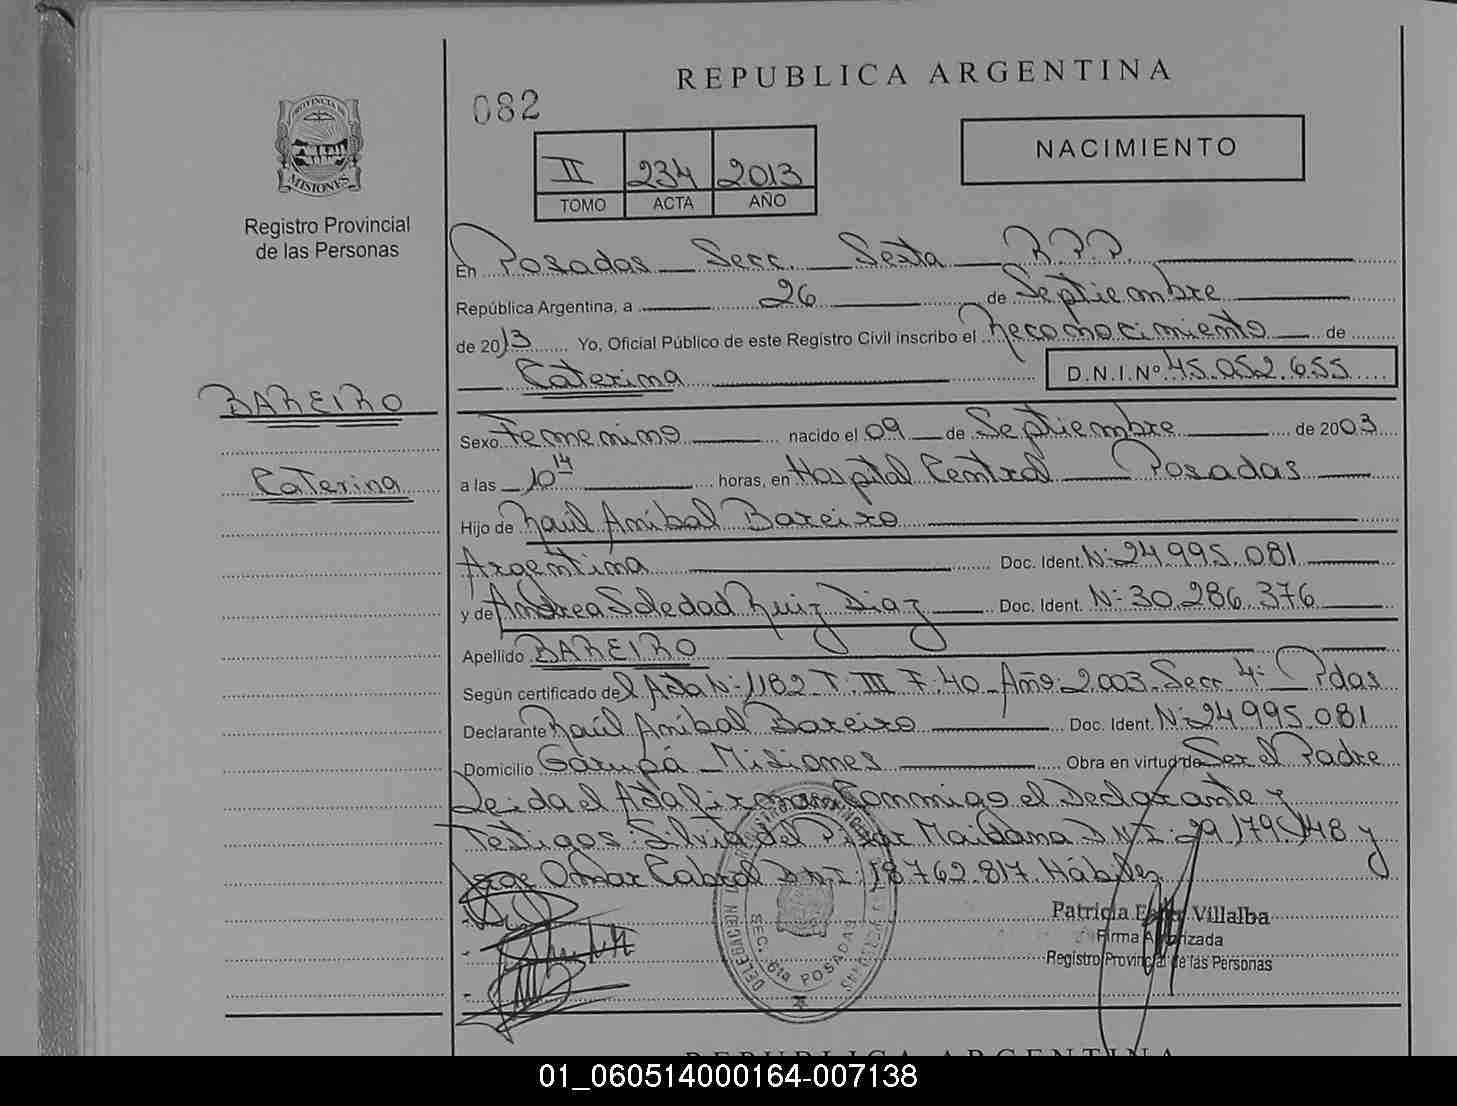 REPUBLICA ARGENTINA
082
NACIMIENTO
II 234 2013
TOMO ACTA AÑO
PROVINCIA DE
MISIONES
Registro Provincial
de las Personas
En Posadas Secc. Sexta R.P.P.
República Argentina, a 26 de Septiembre
de 2013 Yo, Oficial Público de este Registro Civil inscribo el Reconocimiento de
Caterina D.N.I.Nº 45.052.655
BAREIRO
Caterina
Sexo Femenino nacido el 09 de Septiembre de 2003
a las 10 14 horas, en Hospital Central Posadas
Hijo de Raúl Aníbal Bareiro
Argentina Doc. Ident. Nº 24.995.081
y de Andrea Soledad Ruiz Diaz Doc. Ident. Nº 30.286.376
Apellido BAREIRO
Según certificado del Acta Nº 1182 T. III F. 40 Año 2.003 Secc 4ª Pdas
Declarante Raúl Aníbal Bareiro Doc. Ident. Nº 24.995.081
Domicilio Garupá Misiones Obra en virtud de Ser el Padre
Leida el Acta firman Conmigo el Declarante y
Testigos: Silvia del Pilar Maidana D.N.I: 29.179.148 y
Jorge Omar Cabral D.N.I: 18.762.817 Hábiles
Patricia Villalba
Firma Autorizada
Registro Provincial de las Personas
SEC. 6ta POSADAS
REPUBLICA ARGENTINA
01_060514000164-007138